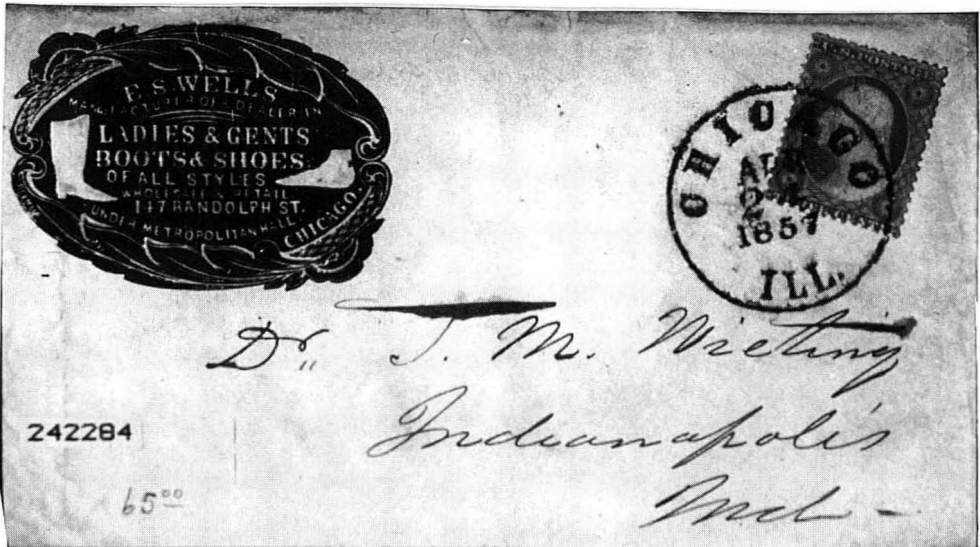 E. S. WELLS
MANUFACTURER OF & DEALER IN
LADIES & GENTS
BOOTS & SHOES
OF ALL STYLES
WHOLESALE & RETAIL
147 RANDOLPH ST.
UNDER METROPOLITAN HALL
CHICAGO.
CHICAGO
1857
ILL.
Dr. M. Wieting
Indianapolis
Ind -
242284
65⁰⁰